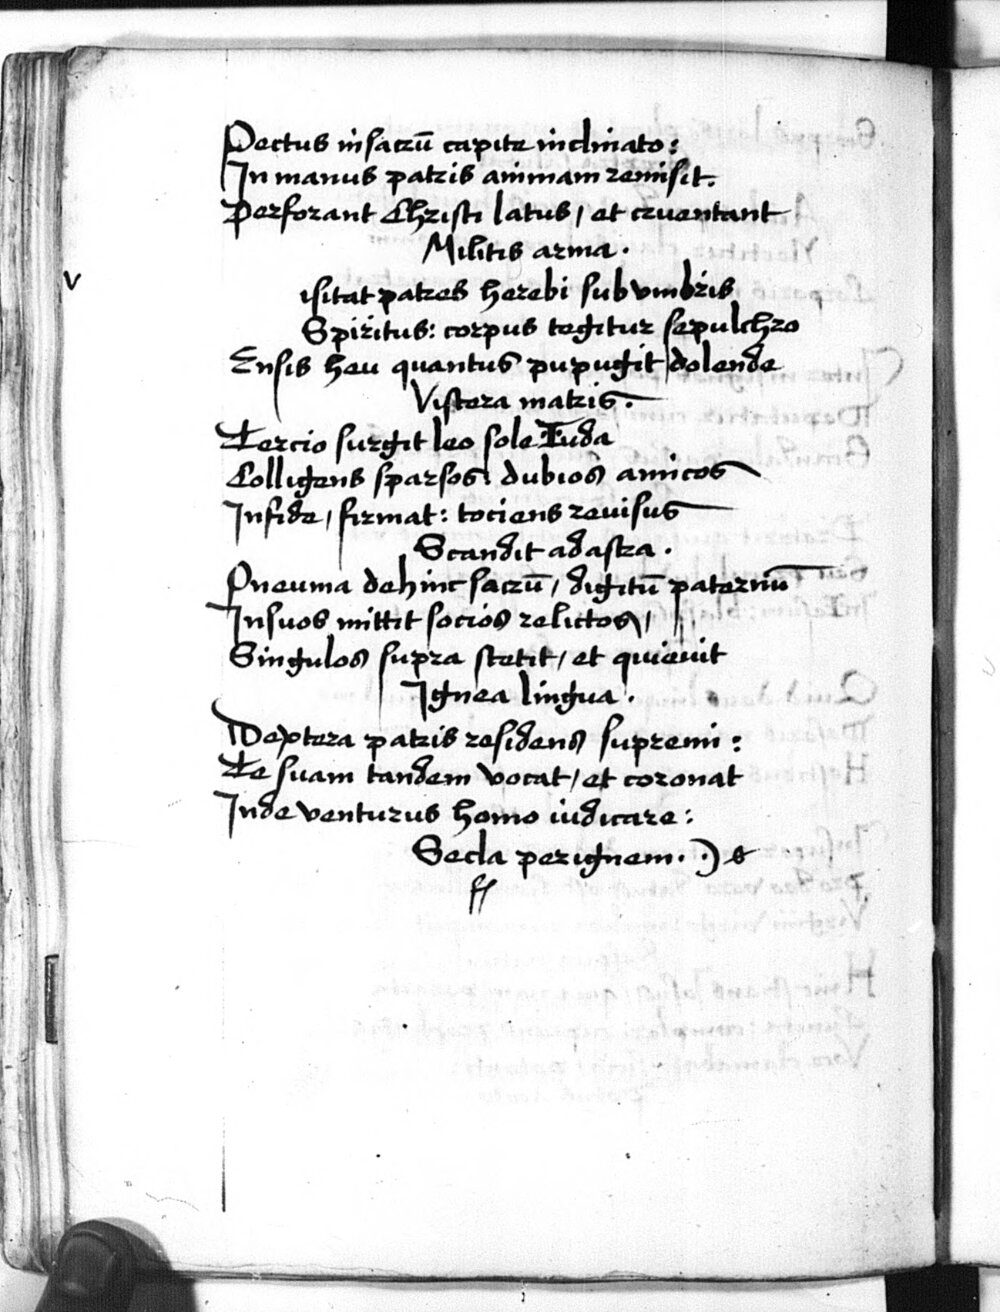 Pectus in sacrū capite inclinato:
In manus patris animam remisit.
Perforant Christi latus, et cruentant
Militis arma.
v
isitat patres herebi sub vmbris
Spiritus: corpus tegitur sepulchro
Ensis heu quantus pupugit dolende
Viscera matris.
Tercio surgit leo sole Iuda
Colligens sparsos: dubios amicos
In fide, firmat: tociens reuisus
Scandit ad astra.
Pneuma dehinc sacrū, digitū paternū
In suos mittit socios relictos,
Singulos supra stetit, et quieuit
Ignea lingua.
Dextera patris residens supremi:
Te suam tandem vocat, et coronat
Inde venturus homo iudicare:
Secla per ignem.